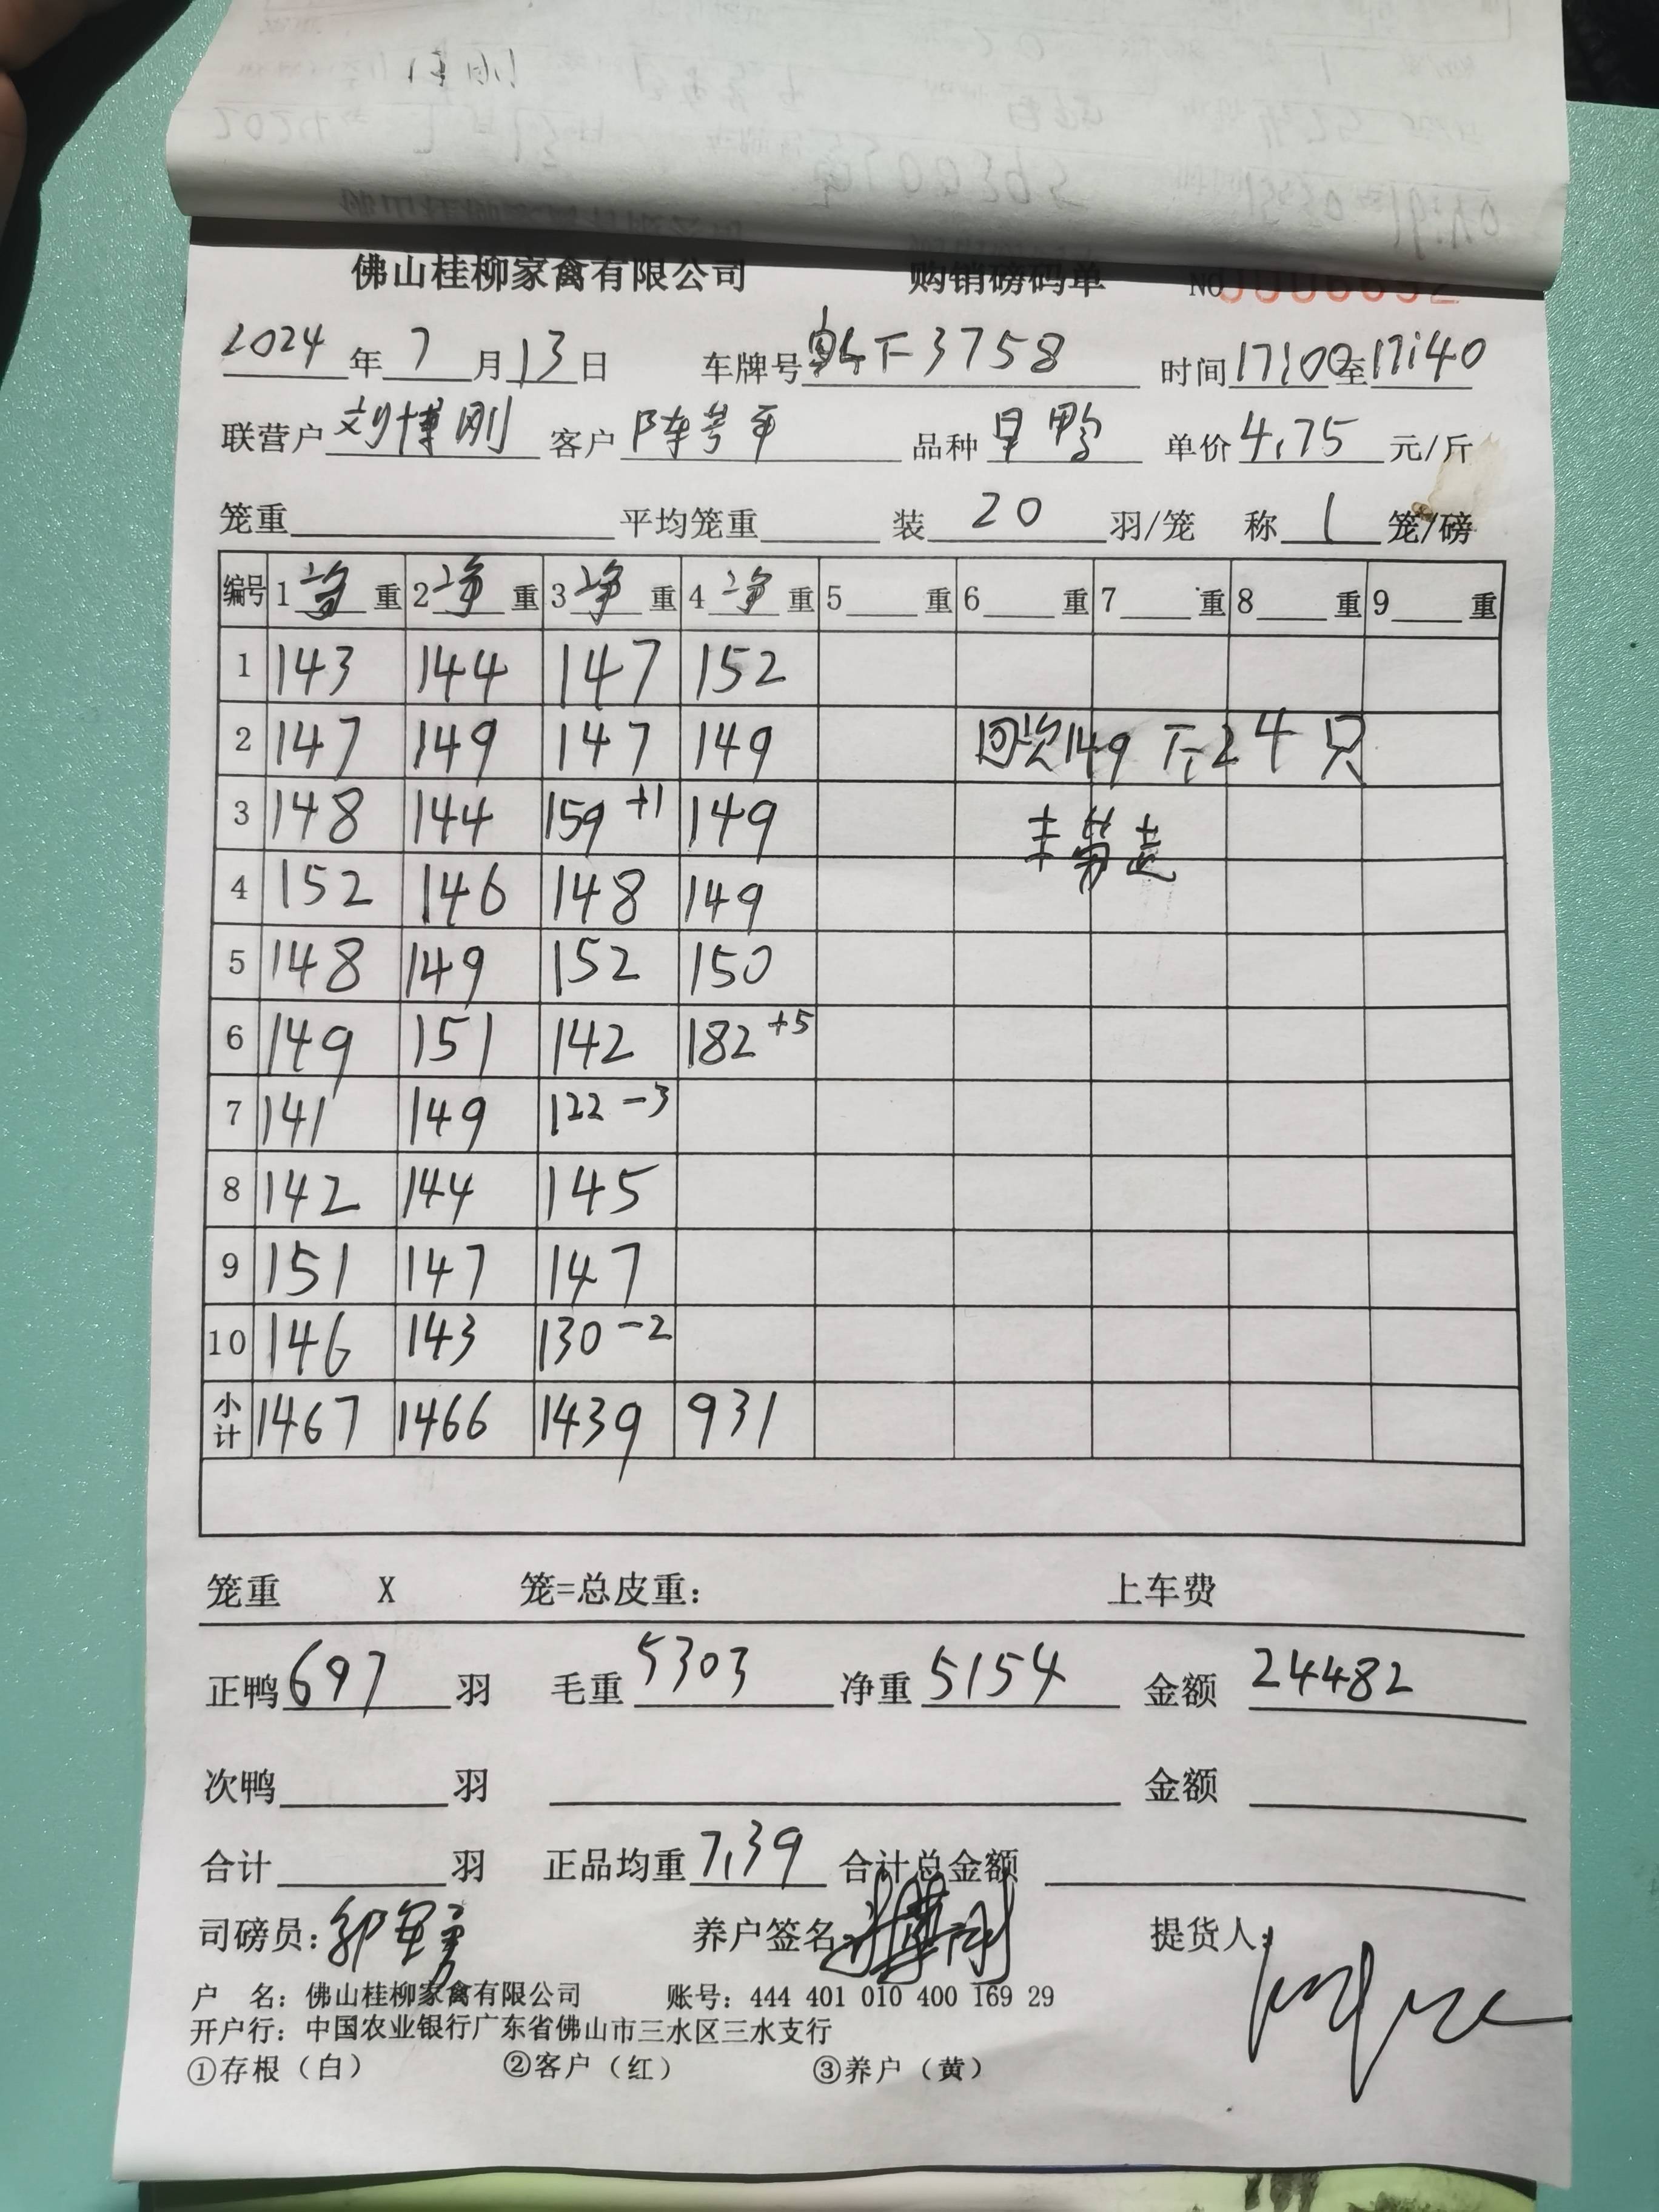 佛山桂柳家禽有限公司 购销磅码单 NO
2024年7月13日 车牌号 F3758 时间17:00至17:40
联营户刘博刚 客户陈 平 品种旦鸭 单价4.75元/斤
笼重 平均笼重 装20羽/笼 称1笼/磅
编号 1净重 2净重 3净重 4净重 5重 6重 7重 8重 9重
1 143 144 147 152
2 147 149 147 149 回次149斤 24只
3 148 144 159+1 149
4 152 146 148 149
5 148 149 152 150
6 149 151 142 182+5
7 141 149 122-3
8 142 144 145
9 151 147 147
10 146 143 130-2
小计 1467 1466 1439 931
笼重 X 笼=总皮重: 上车费
正鸭697羽 毛重5303 净重5154 金额24482
次鸭 羽 金额
合计 羽 正品均重7.39 合计总金额
司磅员: 养户签名: 提货人:
户 名: 佛山桂柳家禽有限公司 账号: 444 401 010 400 169 29
开户行: 中国农业银行广东省佛山市三水区三水支行
①存根(白) ②客户(红) ③养户(黄)